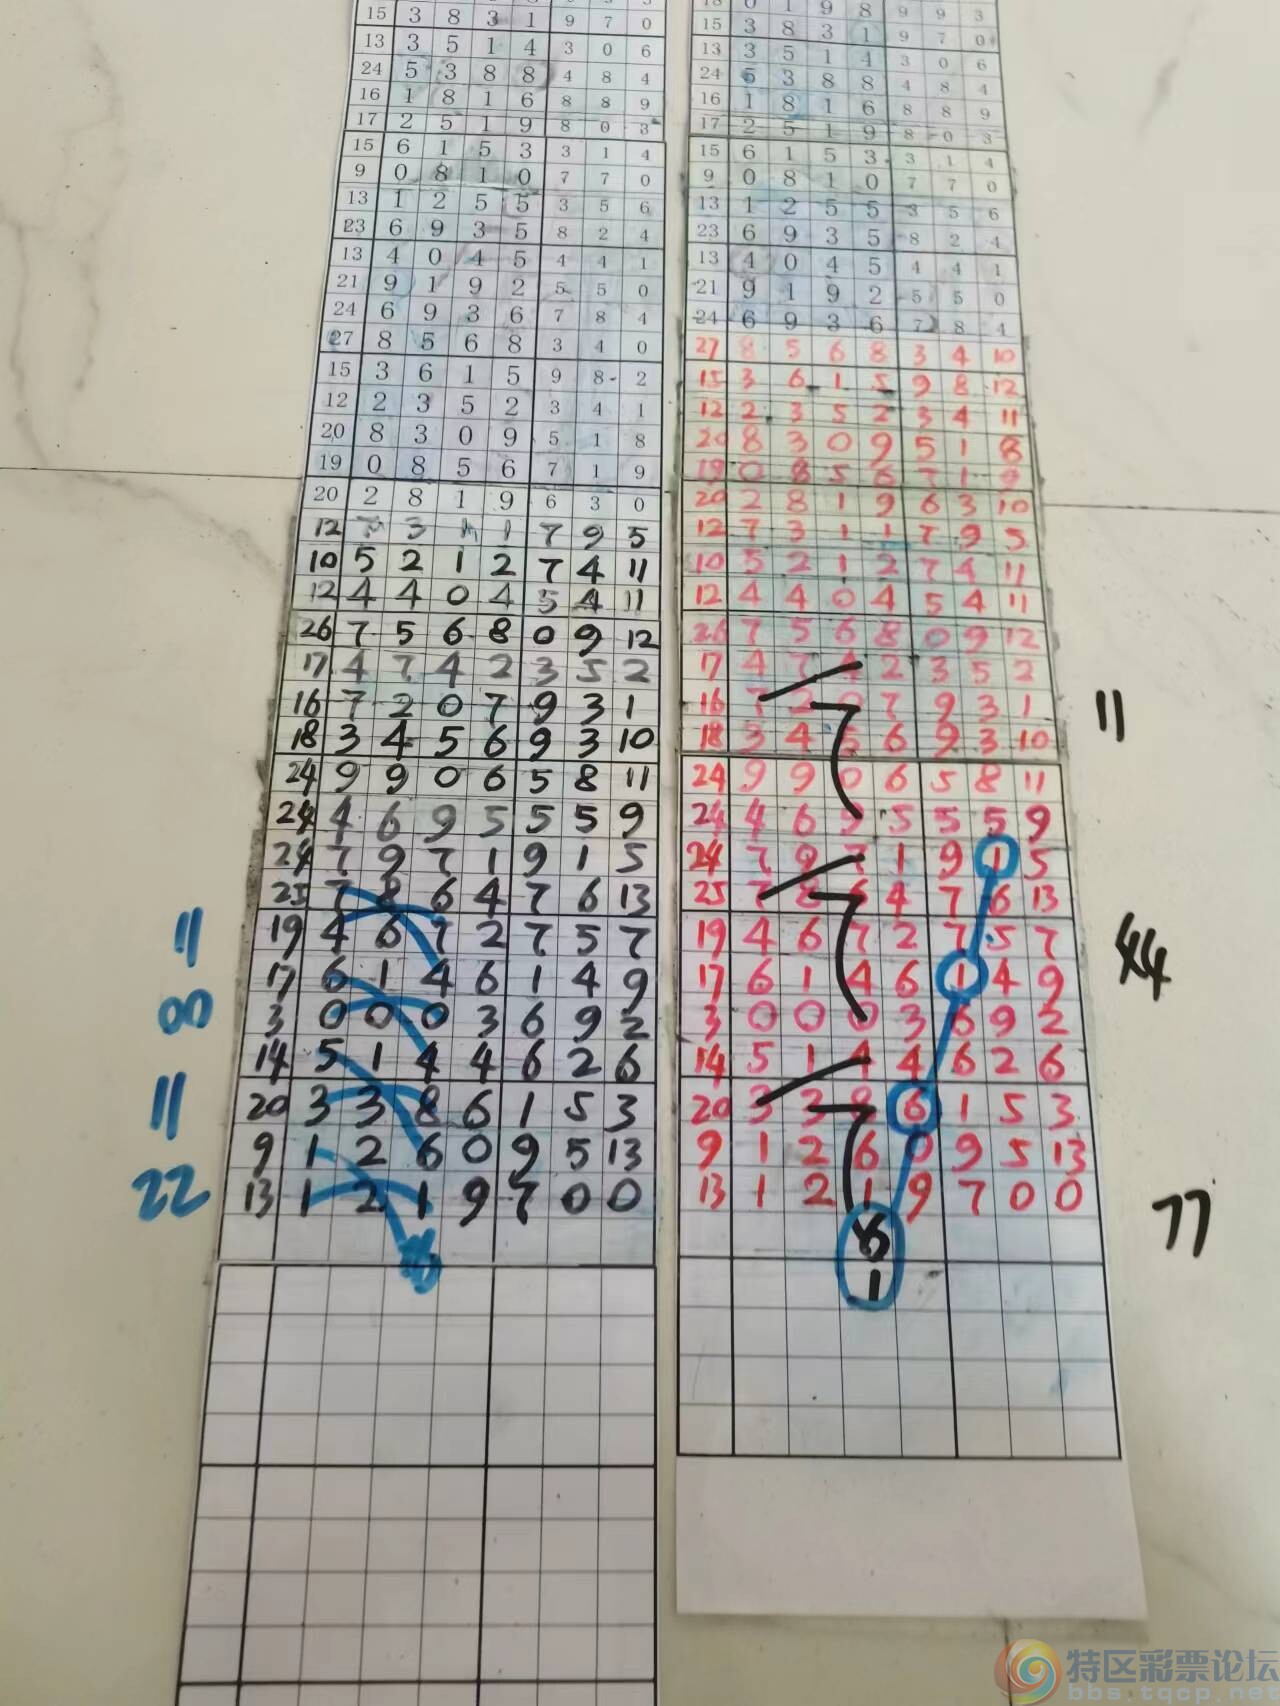 15 3 8 3 1 9 7 0
13 3 5 1 4 3 0 6
24 5 3 8 8 4 8 4
16 1 8 1 6 8 8 9
17 2 5 1 9 8 0 3
15 6 1 5 3 3 1 4
9 0 8 1 0 7 7 0
13 1 2 5 5 3 5 6
23 6 9 3 5 8 2 4
13 4 0 4 5 4 4 1
21 9 1 9 2 5 5 0
24 6 9 3 6 7 8 4
27 8 5 6 8 3 4 0
15 3 6 1 5 9 8 2
12 2 3 5 2 3 4 1
20 8 3 0 9 5 1 8
19 0 8 5 6 7 1 9
20 2 8 1 9 6 3 0
12 7 3 1 1 7 9 5
10 5 2 1 2 7 4 11
12 4 4 0 4 5 4 11
26 7 5 6 8 0 9 12
17 4 7 4 2 3 5 2
16 7 2 0 7 9 3 1
18 3 4 5 6 9 3 10
24 9 9 0 6 5 8 11
24 4 6 9 5 5 5 9
24 7 9 7 1 9 1 5
25 7 8 6 4 7 6 13
11 19 4 6 7 2 7 5 7
17 6 1 4 6 1 4 9
00 3 0 0 0 3 6 9 2
14 5 1 4 4 6 2 6
11 20 3 3 8 6 1 5 3
9 1 2 6 0 9 5 13
22 13 1 2 1 9 7 0 0
0 1 9 8 9 9 3
15 3 8 3 1 9 7 0
13 3 5 1 4 3 0 6
24 5 3 8 8 4 8 4
16 1 8 1 6 8 8 9
17 2 5 1 9 8 0 3
15 6 1 5 3 3 1 4
9 0 8 1 0 7 7 0
13 1 2 5 5 3 5 6
23 6 9 3 5 8 2 4
13 4 0 4 5 4 4 1
21 9 1 9 2 5 5 0
24 6 9 3 6 7 8 4
27 8 5 6 8 3 4 10
15 3 6 1 5 9 8 12
12 2 3 5 2 3 4 11
20 8 3 0 9 5 1 8
19 0 8 5 6 7 1 9
20 2 8 1 9 6 3 10
12 7 3 1 1 7 9 5
10 5 2 1 2 7 4 11
12 4 4 0 4 5 4 11
26 7 5 6 8 0 9 12
17 4 7 4 2 3 5 2
16 7 2 0 7 9 3 1 11
18 3 4 5 6 9 3 10
24 9 9 0 6 5 8 11
24 4 6 9 5 5 5 9
24 7 9 7 1 9 1 5
25 7 8 6 4 7 6 13
19 4 6 7 2 7 5 7 44
17 6 1 4 6 1 4 9
3 0 0 0 3 6 9 2
14 5 1 4 4 6 2 6
20 3 3 8 6 1 5 3
9 1 2 6 0 9 5 13
13 1 2 1 9 7 0 0 77
6
1
特区彩票论坛
bbs.tqcp.net